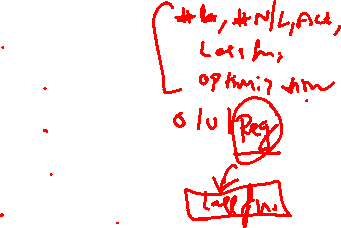 #L, #N/L, Act,
Loss fn,
optimization
O/U Reg
Loss fn.